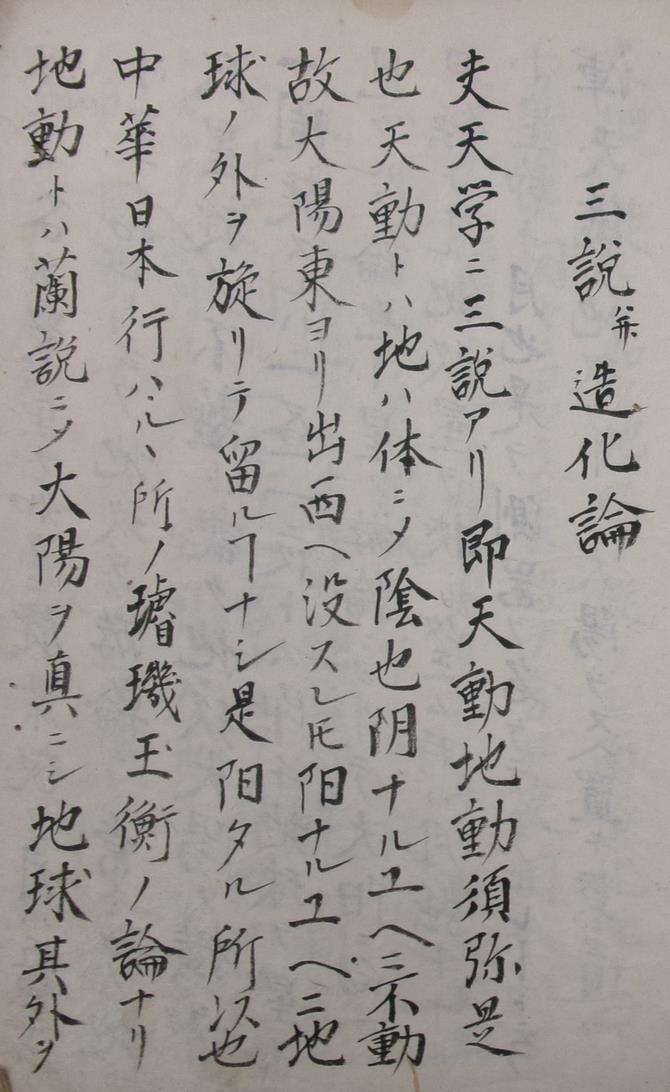 三說幷造化論
夫天学ニ三說アリ即天動地動須弥是
也天動トハ地ハ体ニメ陰也阴ナルユヘニ不動
故大陽東ヨリ出西ヘ没スレ𪜈阳ナルユヘニ地
球ノ外ヲ旋リテ留ルヿナシ是阳タル所以也
中華日本行ハルヽ所ノ璿璣玉衡ノ論ナリ
地動トハ蘭說ニメ大陽ヲ真ニシ地球其外ヲ